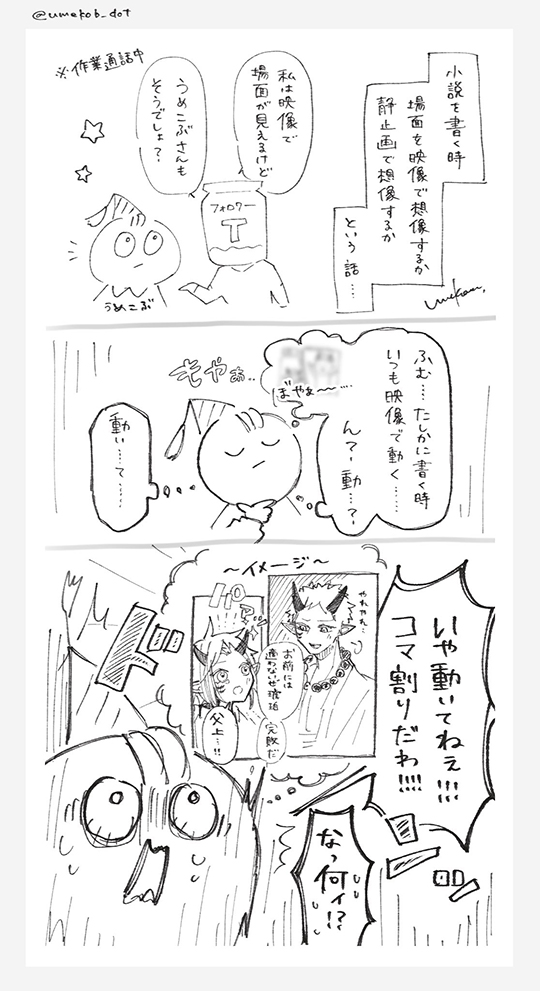 @umekob_dot
小説を書く時
場面を映像で想像するか
静止画で想像するか
という話…
※作業通話中
私は映像で
場面が見えるけど
うめこぶさんも
そうでしょ？
フォロワー
T
うめこぶ
ふむ…たしかに書く時
いつも映像で動く……
んでー動…？
ぼやぁ〜〜……
もやぉ..
動い…て……
いや動いてねぇ!!!
コマ割りだわ!!!!
〜イメージ〜
やれやれ…
パアッ
お前には
適わないぜ琥珀
完敗だ
父上…!!
なっ何ィ!?